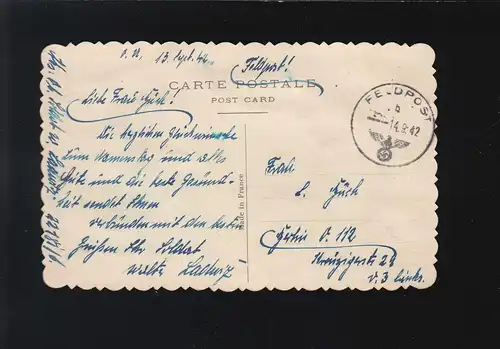 O.U., 13. Sept. 42
Feldpost!
CARTE POSTALE
POST CARD
FELDPOST
b
14.9.42
Liebe Frau Gück!
Die herzlichen Glückwünsche
zum Namenstag und alles
Gute und die beste Gesund-
heit sendet Ihnen
verbunden mit den besten
Grüßen Ihr Soldat
Ladwig
Made in France
Frau
L. Gück
Berlin O. 112
Kreuzigerstr 28
v. 3 links.